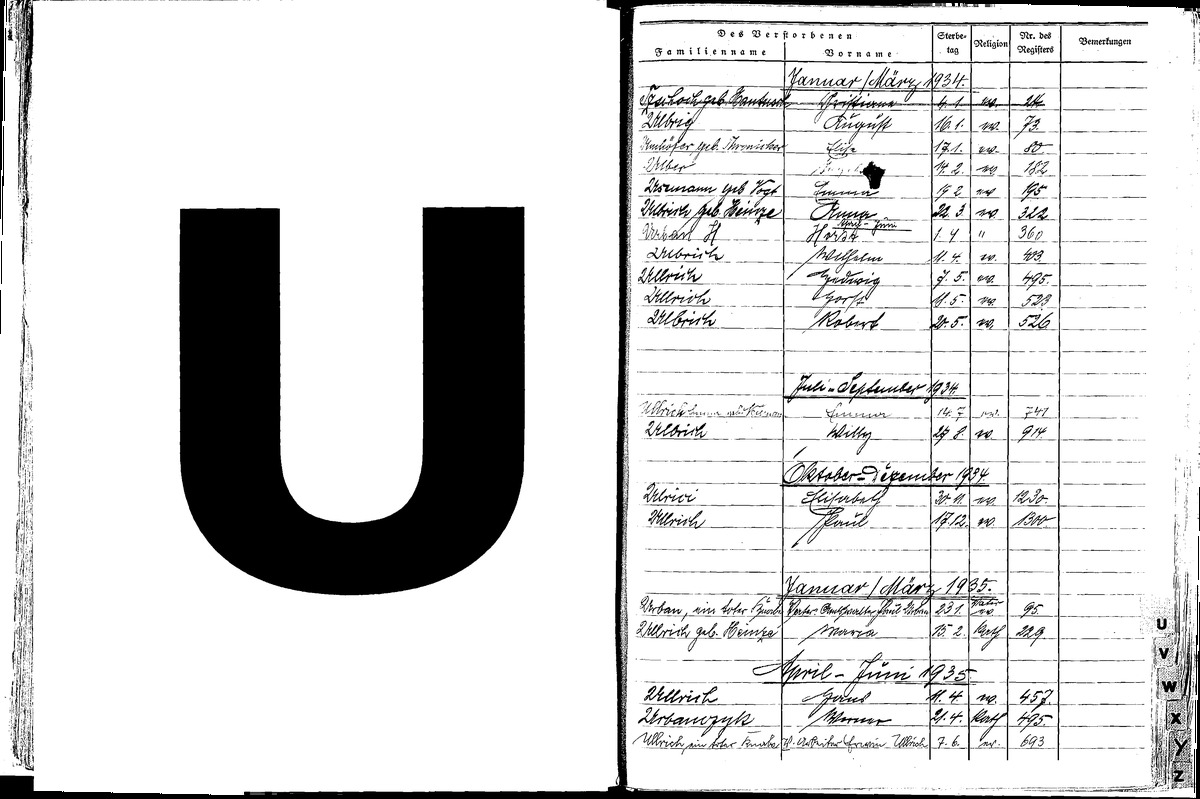 U
Des Verstorbenen
Familienname Vorname Sterbe-tag Religion Nr. des Registers Bemerkungen
Januar/März 1934.
geb. 4. 1. ev. 24
Ulbrig August 16. 1. ev. 73.
geb. Elise 17. 1. ev. 80
Ulber 14. 2. ev 182
geb Vogt Emma 17. 2. ev 195
Ulbrich geb. Heinze Anna 22. 3. ev 322
April - Juni
Urban H Horst 1. 4 " 360
Ulbrich Wilhelm 11. 4. ev. 403
Ullrich Hedwig 7. 5. ev. 495.
Ullrich Horst 11. 5 ev. 523
Ulbrich Robert 20. 5. ev. 526
Juli-September 1934.
Ullrich Emma 14. 7 ev. 741
Ulbrich Willy 27 8. ev. 914.
Oktober-Dezember 1934.
Ulrici Elisabeth 30. 11. ev. 1230
Ullrich Paul 17. 12. ev. 1300
Januar/März 1935.
Urban, ein toter Knabe Vater: Paul Urban 23 1. Vater ev. 95.
Ullrich geb. Heinze Maria 15. 2. Kath 229
April - Juni 1935
Ullrich Hans 11. 4. ev. 457.
Urbanczyk Werner 21. 4. Kath 495
Ullrich, ein toter Knabe V. Arbeiter Erwin Ullrich 7. 6. ev. 693
U
V
W
X
Y
Z